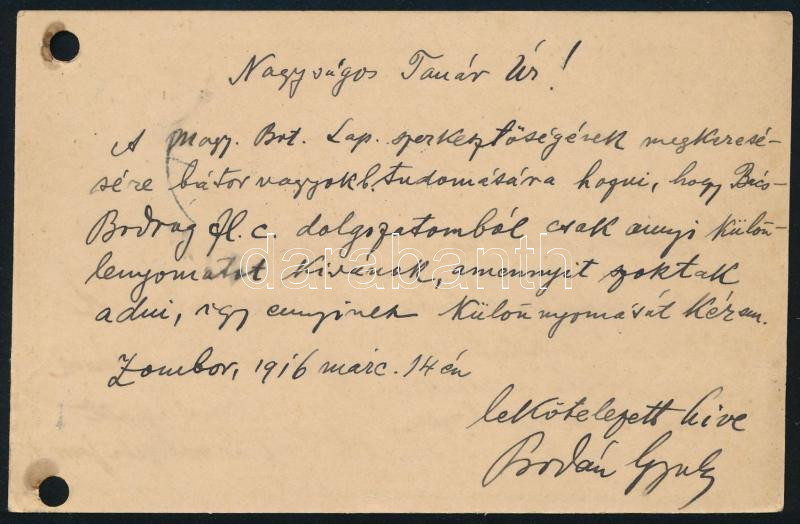 Nagyságos Tanár Úr!
A Magy. Bot. Lap. szerkesztőségének megkeresé-
sére bátor vagyok b. tudomására hozni, hogy Bács-
Bodrog fl. c. dolgozatomból csak annyi külön-
lenyomatot kivánok, amennyit szoktak
adni, így ennyinek különnyomását kérem.
Zombor, 1916 márc. 14 én
lekötelezett hive
Prodán Gyula
darabanth